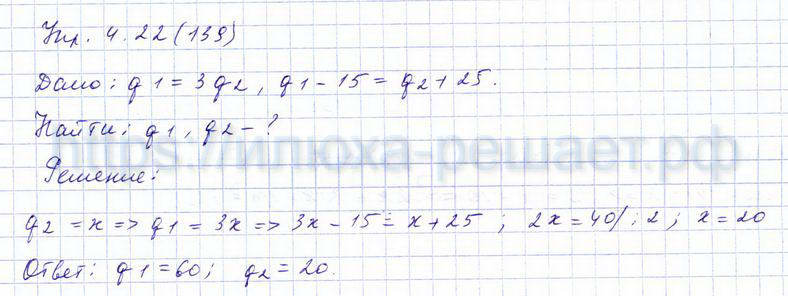 Упр. 4.22(139)
Дано: g1 = 3g2, g1 - 15 = g2 + 25.
Найти: g1, g2 - ?
https://илюха-решает.рф
Решение:
g2 = x => g1 = 3x => 3x - 15 = x + 25 ; 2x = 40/:2 ; x = 20
Ответ: g1 = 60; g2 = 20.